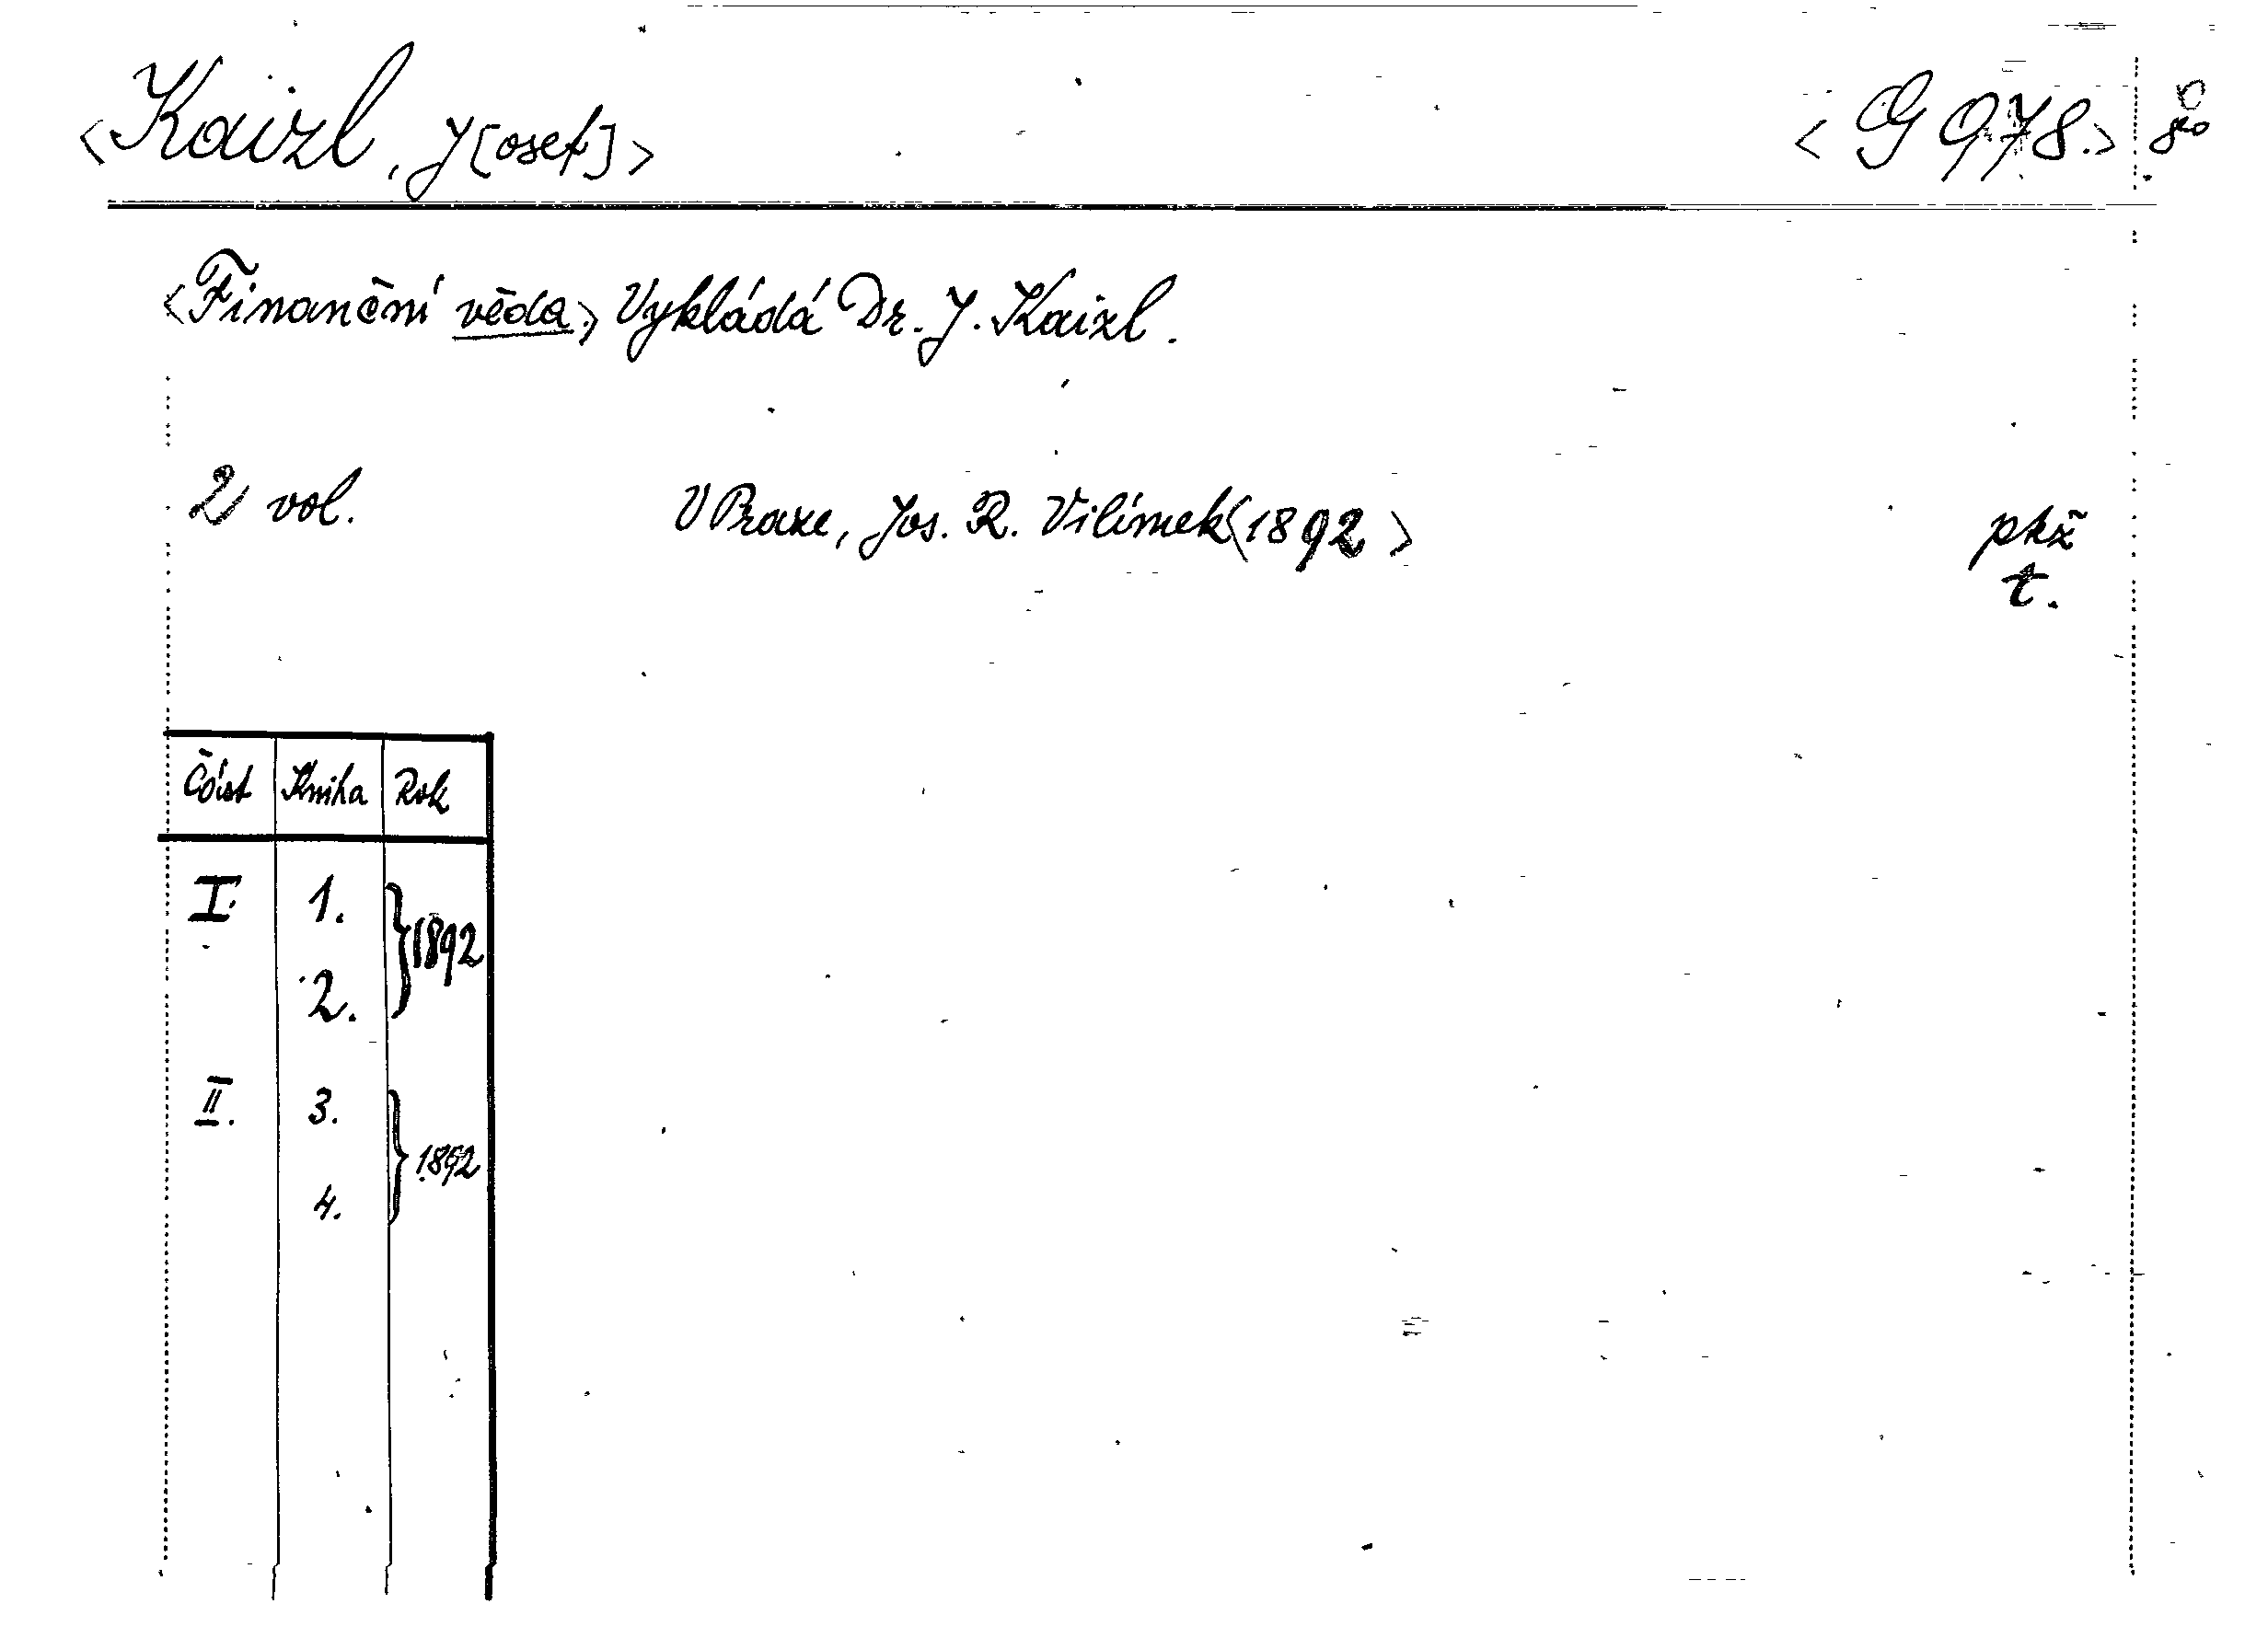 <Kaizl, J[osef]> <G 978.> 8o
<Finanční věda.> Vykládá Dr. J. Kaizl.
2 vol. V Praze, Jos. R. Vilímek <1892>
pkž
t.
Část Kniha Rok
I. 1. } 1892
2.
II. 3. } 1892
4.